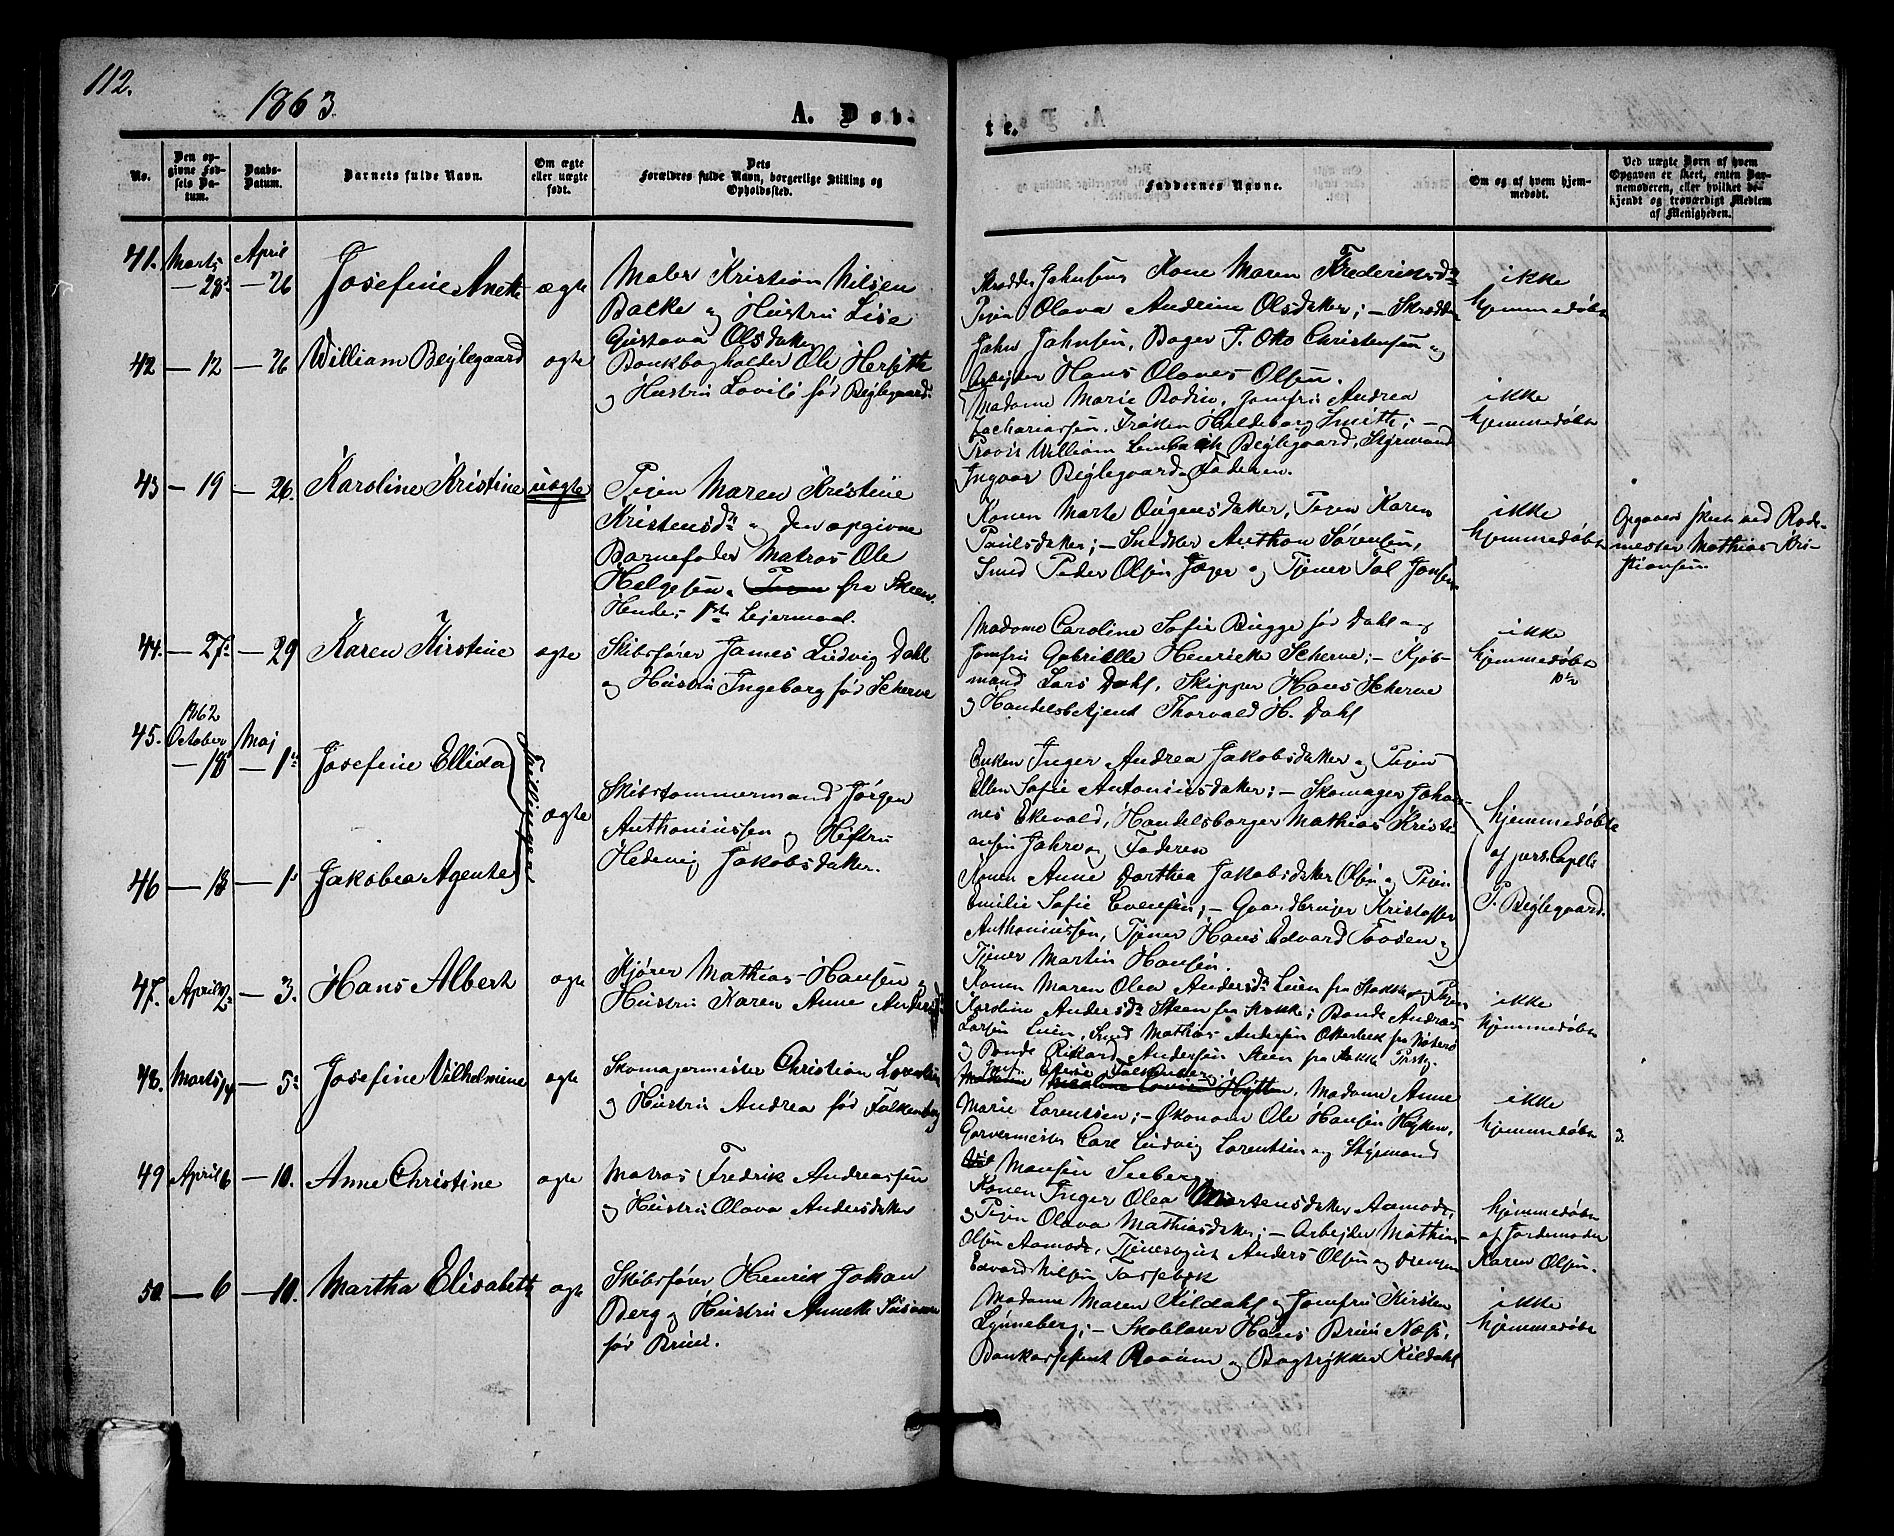 112.
1863
A. Døb-
te.
No.
Den op-
givne Fød-
sels Da-
tum.
Daabs-
Datum.
Barnets fulde Navn.
Om ægte
eller uægte
født.
Dets
Forældres fulde Navn, borgerlige Stilling og
Opholdssted.
Faddernes Navne.
Om og af hvem hjem-
medøbt.
Ved uægte Børn af hvem
Opgaven er skeet, enten Bar-
nemoderen, eller hvilket be-
kjendt og troværdigt Medlem
af Menigheden.
41. Marts April
— 28 — 26 Josefine Anette ægte
Maler Kristian Nilsen
Balke og Hustru Lise
Gustava Olsdatter
Skrædder Jahnsens Kone Maren Frederiksdr
Pigen Olava Andrine Olsdatter; — Skrædder
Jahn Jahnsen, Bager J. Otto Christensen og
Arbejder Hans Olaves Olsen.
ikke
hjemmedøbt
42 — 12 — 26 William Bejlegaard ægte
Bankbogholder Ole Herseth
og Hustru Lovise før Bejlegaard.
Madame Marie Bodin, Jomfru Andrea
Zachariassen, Frøken Hildeborg Smith; —
Provis William Lembach Bejlegaard, Styrmand
Ingvar Bejlegaard, Faderen.
ikke
hjemmedøbt
43 — 19 — 26. Karoline Kristine uægte
Pigen Maren Kristine
Kristensdr og den opgivne
Barnefader Matros Ole
Helgesen fra Skeen.
Hendes 1ste Lejermaal.
Konen Marte Eugensdatter, Pigen Karen
Paulsdatter; — Snedker Anthon Sørensen,
Smed Peder Olsen Jæger og Tjener Jonsen
ikke
hjemmedøbt
Opgaven skeet ved Rode-
mester Mathias Kri-
stiansen
44. — 27 — 29 Karen Kirstine ægte
Skibsfører James Ludvig Dahl
og Hustru Ingeborg før Scherve
Madame Caroline Sofie Bugge før Dahl og
Jomfru Gabrielle Henrikke Scherve; — Kjøb-
mand Lars Dahl, Skipper Hans Scherve
og Handelsbetjent Thorvald H. Dahl
ikke
hjemmedøbt
45. 1862
October Maj
— 18 — 1 Josefine Ellida
Tvillinger
ægte
Skibstømmermand Jørgen
Anthoniussen og Hustru
Hedevig Jakobsdatter.
Enken Inger Andrea Jakobsdatter og Pigen
Ellen Sofie Antoniusdatter; — Skomager Johan-
nes Ekevald, Handelsborger Mathias Kristi-
ansen Jahre og Faderen
hjemmedøbte
af pers. Capell
P. Bejlegaard.
46 — 18 — 1 Jakobea Agente
Konen Anne Dorthea Jakobsdatter Olsen og Pigen
Emilie Sofie Evensen; — Gaardbruger Kristoffer
Anthoniussen, Tjener Hans Edvard Toosen og
Tjener Martin Hansen.
47. April 2 — 3. Hans Albert ægte
Kjører Mathias Hansen og
Hustru Karen Anne Andersdr
Konen Maren Olea Andersdr Luen fra Stokke og Pigen
Karoline Andersdr Steen fra Stokke; Bonde Andreas
Larsen Luen, Smed Mathias Andersen Otterbek fra Nøterø
og Bonde Rikard Andersen Steen fra Stokke Prstg.
ikke
hjemmedøbt
48. Marts 14 — 5 Josefine Vilhelmine ægte
Skomagermester Christian Lorentsen
og Hustru Andrea før Falkenberg
Falkenberg
Hytten, Madame Anne
Marie Lorentsen; — Økonom Ole Hansen Højken,
Garvermester Carl Ludvig Lorentsen og Styrmand
Monsen Seeberg
ikke
hjemmedøbt
49 April 6 — 10. Anne Christine ægte
Matros Fredrik Andreassen
og Hustru Olava Andersdatter
Konen Inger Olea Mortensdatter Aamodt,
og Pigen Olava Mathiasdatter; — Arbejder Mathias
Olsen Aamodt, Tjenesegut Anders Olsen og Drengen
Edvard Nilsen Tassebek
hjemmedøbt
af Jordemoder
Karen Olsen.
50. — 6 — 10. Martha Elisabeth ægte
Skibsfører Henrik Johan
Berg og Hustru Annette Susanne
før Bruu.
Madame Maren Kildahl og Jomfru Kirsten
Lynneberg; — Skolelærer Hans Bruu Næss,
Bankassistent Roaum og Bogtrykker Kildahl
ikke
hjemmedøbt